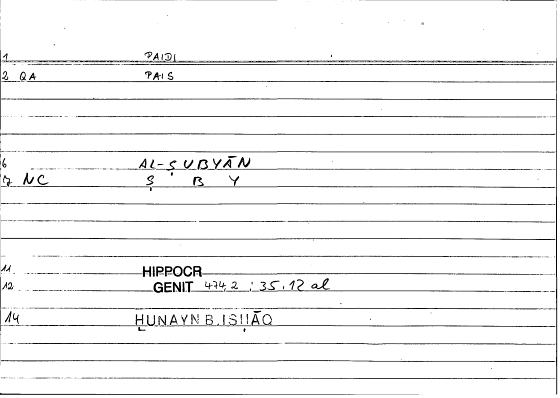 1 PAIDI
2 QA PAIS
6 AL-ṢUBYĀN
7 NC Ṣ B Y
11 HIPPOCR
12 GENIT 474,2 : 35.12 al
14 ḪUNAYN B.ISḤĀQ